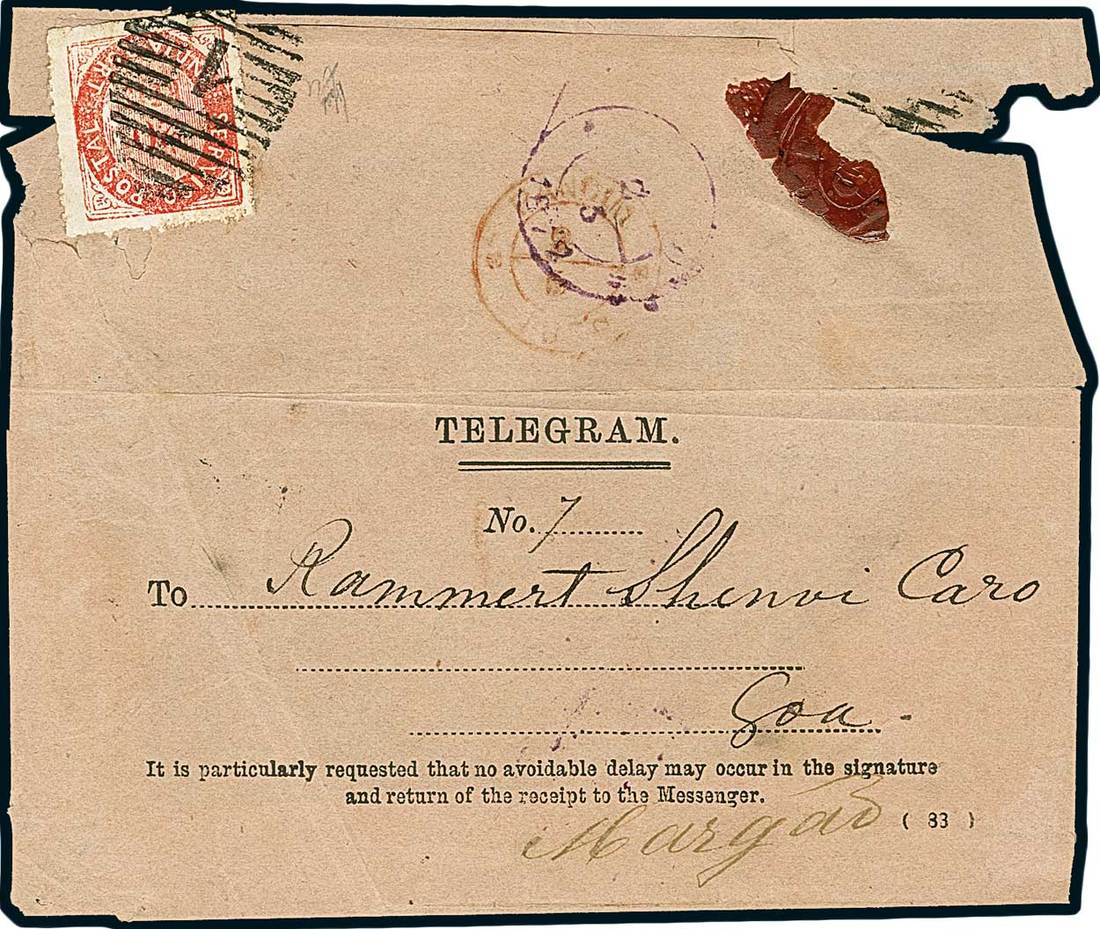 POSTAL SERVICE
TELEGRAM.
No. 7
To Rammert Shenvi Caro
Goa.
It is particularly requested that no avoidable delay may occur in the signature
and return of the receipt to the Messenger.
Margaõ
( 83 )